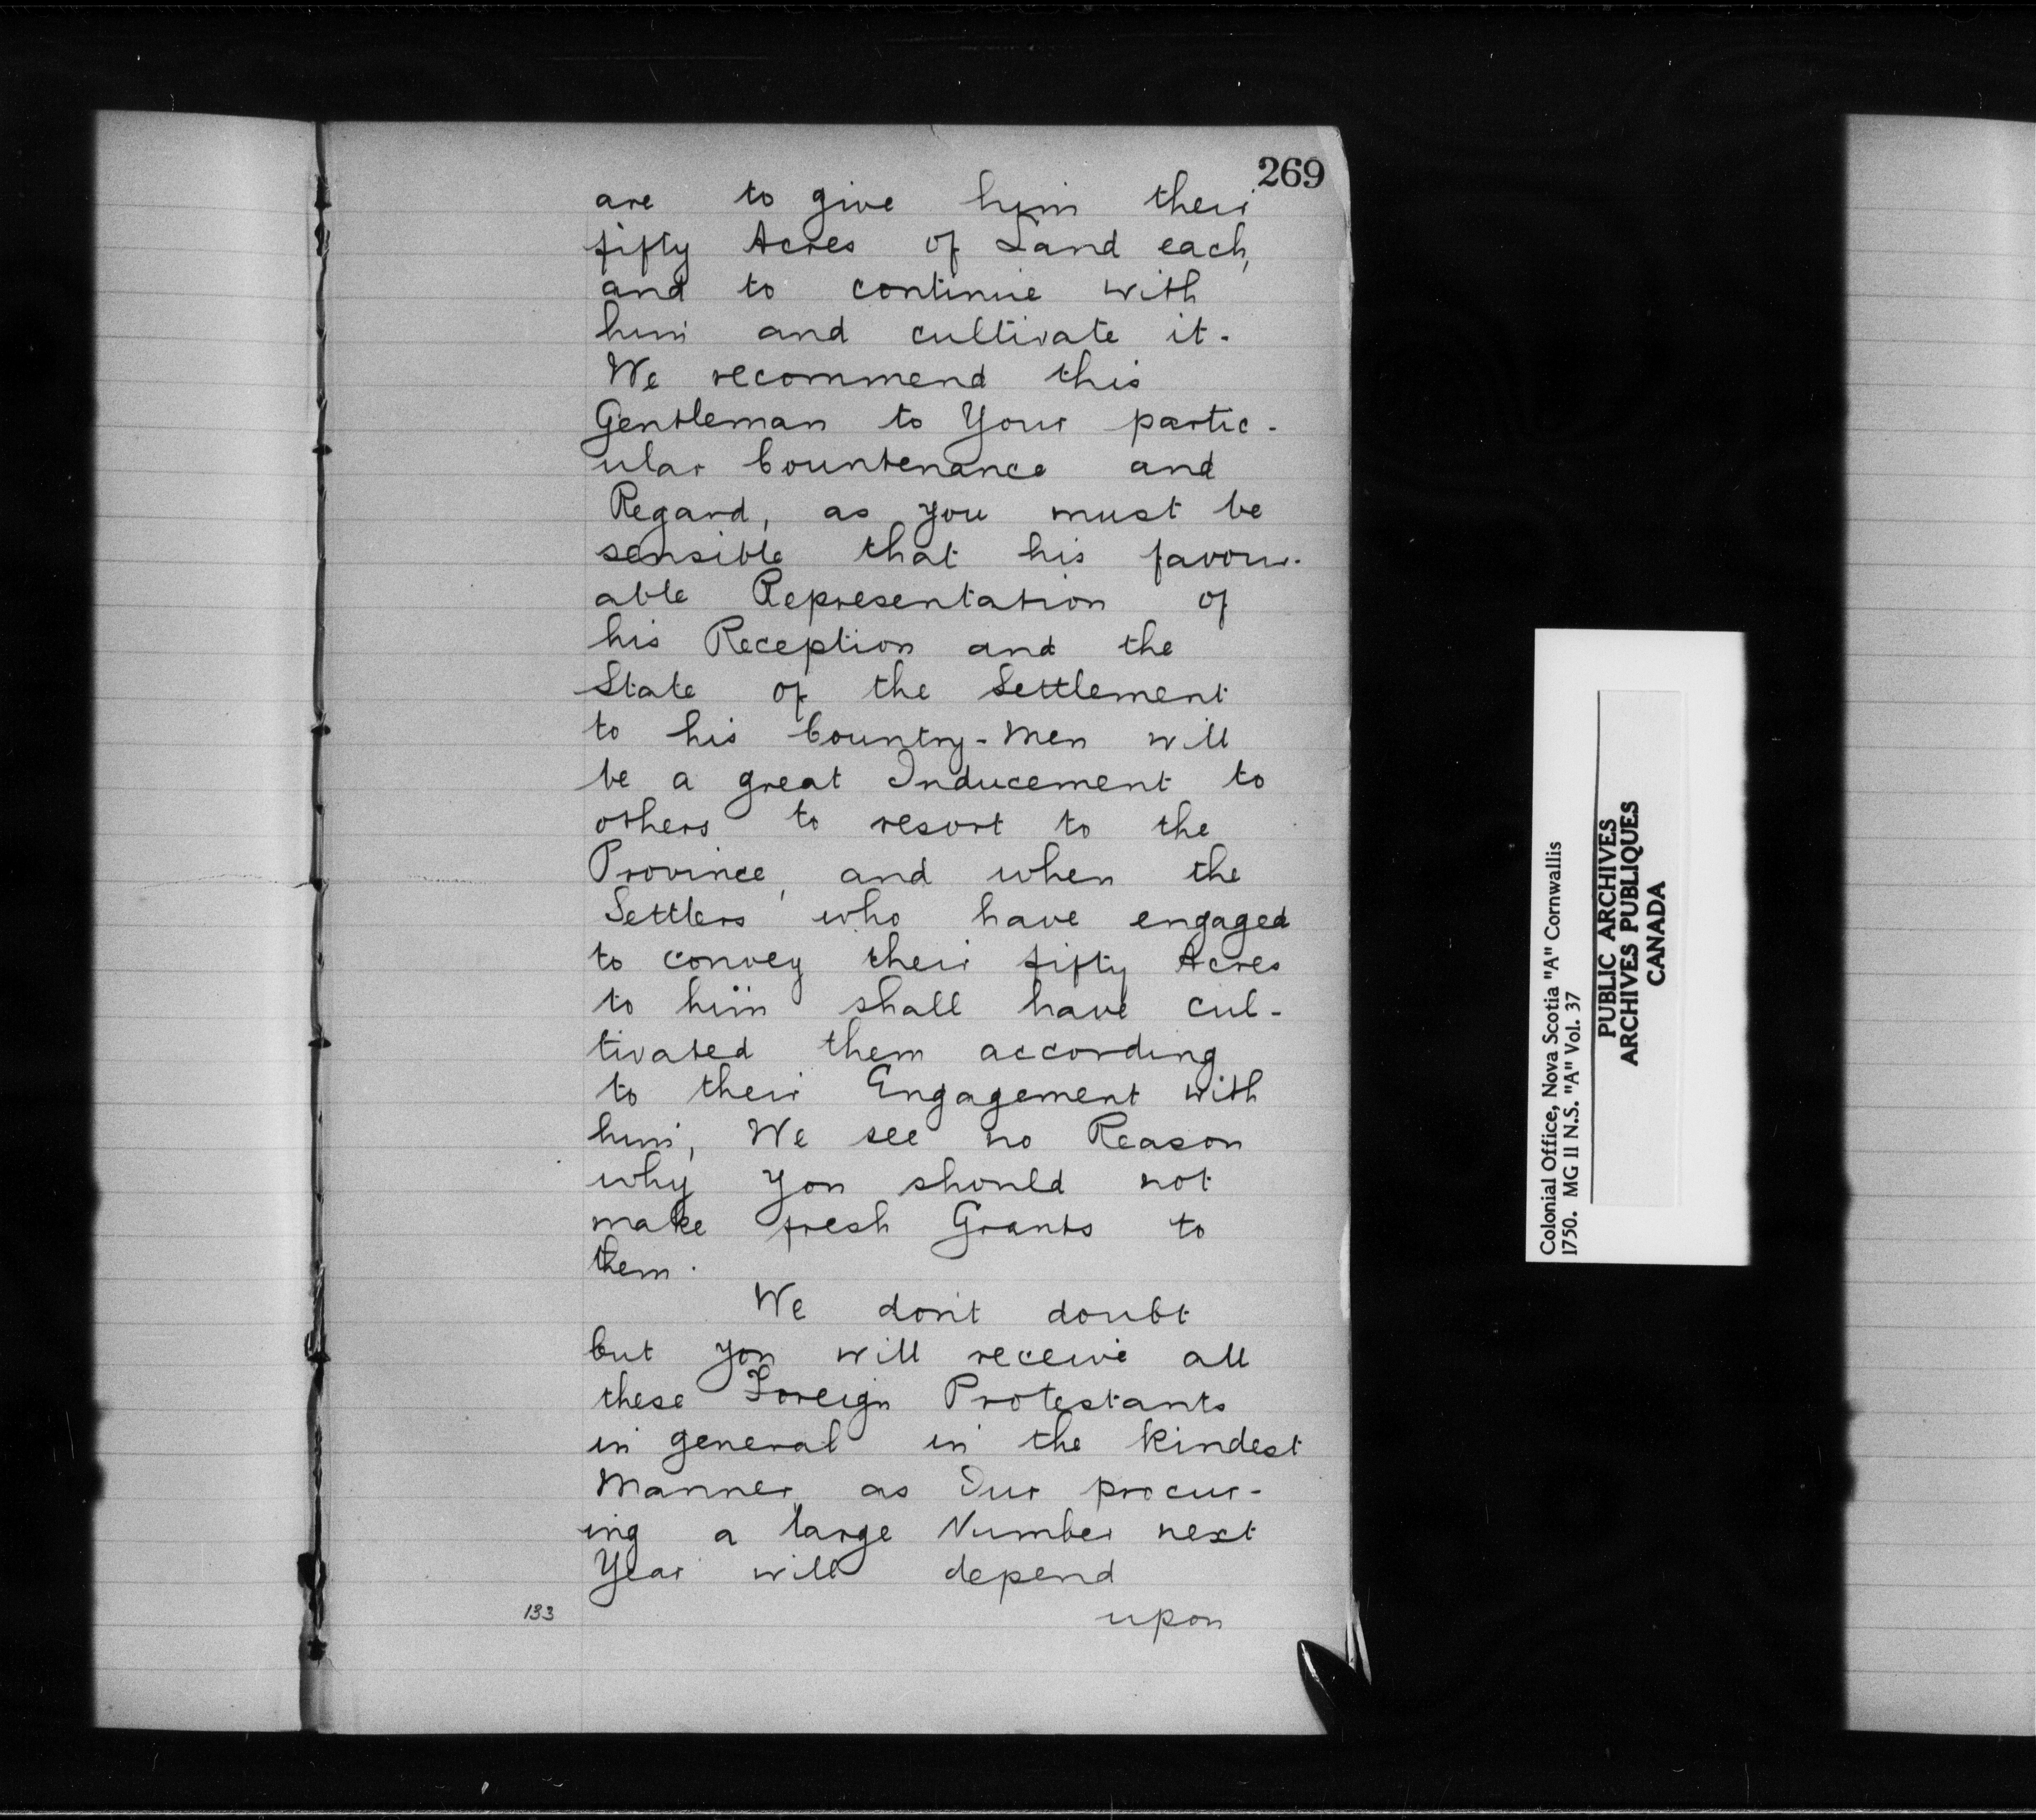 269
are to give him their
fifty Acres of Land each,
and to continue with
him and cultivate it.
We recommend this
Gentleman to Your partic-
ular Countenance and
Regard, as you must be
sensible that his favour-
able Representation of
his Reception and the
State of the Settlement
to his Country-Men will
be a great Inducement to
others to resort to the
Province, and when the
Settlers who have engaged
to convey their fifty Acres
to him shall have cul-
tivated them according
to their Engagement with
him, We see no Reason
why you should not
make fresh Grants to
them.
We don't doubt
but you will receive all
these Foreign Protestants
in general in the kindest
Manner, as Our procur-
ing a large Number next
Year will depend
133
upon
Colonial Office, Nova Scotia "A" Cornwallis
1750. MG 11 N.S. "A" Vol. 37
PUBLIC ARCHIVES
ARCHIVES PUBLIQUES
CANADA